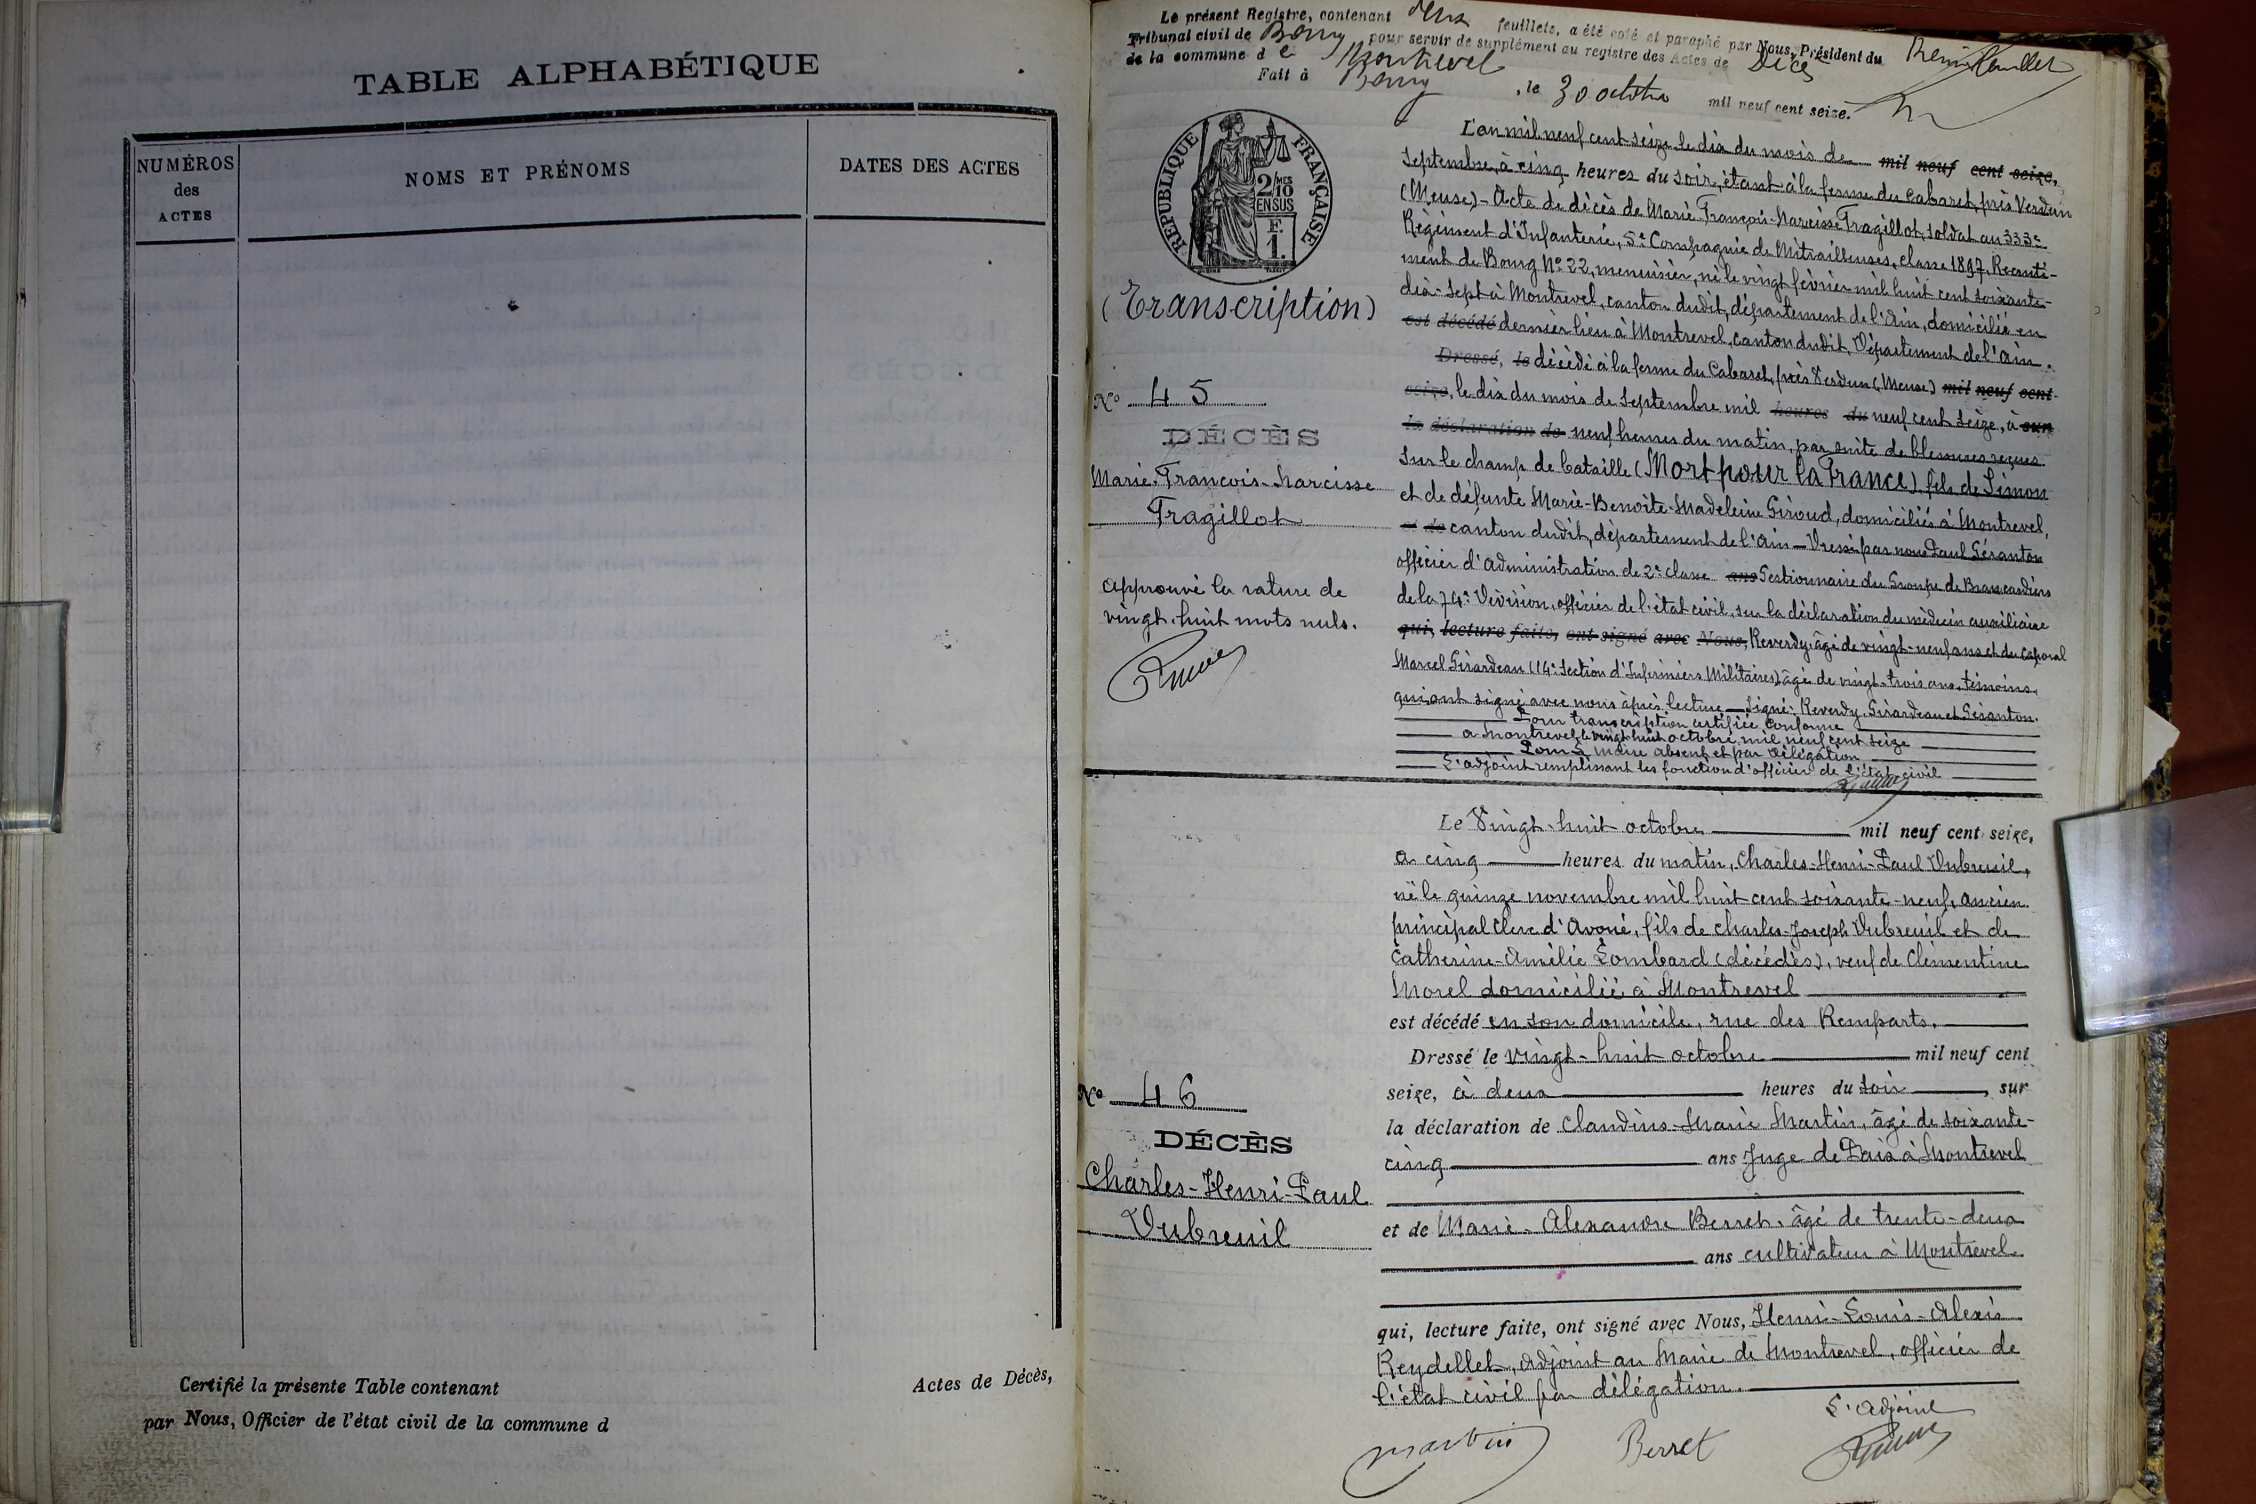 TABLE ALPHABÉTIQUE
NUMÉROS
des
ACTES
NOMS ET PRÉNOMS
DATES DES ACTES
Certifié la présente Table contenant
Actes de Décès,
par Nous, Officier de l'état civil de la commune d
Le présent Registre, contenant deux feuillets, a été coté et paraphé par Nous, Président du
Tribunal civil de Bourg pour servir de supplément au registre des Actes de Décès
de la commune de Montrevel
Fait à Bourg, le 30 octobre mil neuf cent seize.
RÉPUBLIQUE FRANÇAISE
2/10 MES
EN SUS
F.
1.
(Transcription)
No 45
DÉCÈS
Marie-François-Narcisse
Fragillot
Approuvé la rature de
vingt-huit mots nuls.
L'an mil neuf cent seize le dix du mois de mil neuf cent seize,
Septembre, à cinq heures du soir, étant à la ferme du Cabaret, près Verdun
(Meuse) - Acte de décès de Marie-François-Narcisse Fragillot, soldat au 333e
Régiment d'Infanterie, 5e Compagnie de Mitrailleuses, classe 1897, Recrute-
ment de Bourg No 22, menuisier, né le vingt février mil huit cent soixante-
dix-sept à Montrevel, canton dudit, département de l'Ain, domicilié en
est décédé dernier lieu à Montrevel, canton dudit, Département de l'Ain.
Dressé, le décédé à la ferme du Cabaret, près Verdun (Meuse) mil neuf cent
seize, le dix du mois de Septembre mil heures du neuf cent seize, à sur
la déclaration de neuf heures du matin, par suite de blessures reçues
sur le champ de bataille (Mort pour la France), fils de Simon
et de défunte Marie-Benoîte-Madeleine Giroud, domiciliés à Montrevel,
et de canton dudit, département de l'Ain - Dressé par nous Paul Géranton
officier d'Administration de 2e classe ans Gestionnaire du Groupe de Brancardiers
de la 74e Division, officier de l'état civil, sur la déclaration du médecin auxiliaire
qui, lecture faite, ont signé avec Nous, Reverdy, âgé de vingt-neuf ans et du caporal
Marcel Girardeau (14e Section d'Infirmiers Militaires) âgé de vingt-trois ans, témoins,
qui ont signé avec nous après lecture - Signé: Reverdy, Girardeau et Géranton.
Pour transcription certifiée conforme
à Montrevel le vingt huit octobre mil neuf cent seize
Pour le maire absent et par délégation
L'adjoint remplissant les fonction d'officier de l'état civil
No 46
DÉCÈS
Charles-Henri-Paul
Dubreuil
Le Vingt-huit octobre mil neuf cent seize,
à cinq heures du matin, Charles-Henri-Paul Dubreuil,
né le quinze novembre mil huit cent soixante-neuf, ancien
principal Clerc d'Avoué, fils de Charles-Joseph Dubreuil et de
Catherine-Amélie Lombard (décédés), veuf de Clémentine
Morel domicilié à Montrevel
est décédé en son domicile, rue des Remparts.
Dressé le vingt-huit octobre mil neuf cent
seize, à deux heures du soir, sur
la déclaration de Claudius-Marie Martin, âgé de soixante-
cinq ans Juge de Paix à Montrevel
et de Marie-Alexandre Berret, âgé de trente-deux
ans cultivateur à Montrevel
qui, lecture faite, ont signé avec Nous, Henri-Louis-Alexis
Reydellet, adjoint au Maire de Montrevel, officier de
l'état civil par délégation.
L'adjoint
Martin
Berret